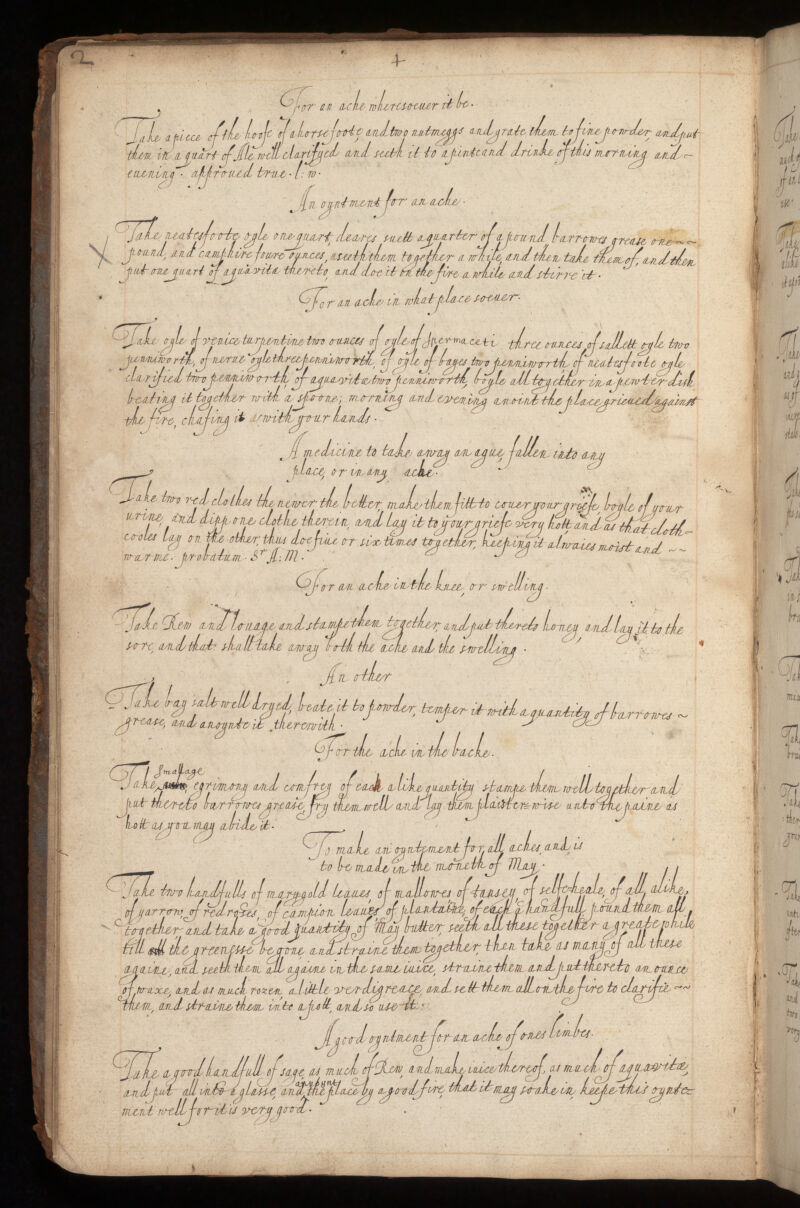 2
For an ache wheresoeuer it be.
Take a piece of the hoofe of a horse foote, and two nutmeggs and grate them to fine powder, and put
them in a quart of Ale well clarifyed and seeth it to a pinte and drinke of this morning and ~
euening. approued true. l: w.
An oyntment for an ache.
Take neatesfoote oyle one quart, deares suett a quarter of a pound, barrowes grease one ~~
pound, and camphire foure ounces, seeth them together a while, and then take them of, and then
put one quart of aquavitæ thereto, and doe it on the fire a while and stirre it.
For an ache in what place soeuer.
Take oyle of venice turpentine two ounces of oyle of Spermaceti three ounces, of sallett oyle two
penniworth, of nerue oyle three penniworth, of oyle of bayes two penniworth of neatesfoote oyle
clarified two penniworth of aquavitæ two penniworth, boyle all together in a pewter dish
beating it together with a spoone; morning and evening anoint the place grieued against
the fire, chafing it with your hands.
A medicine to take away an ague, fallen into any
place, or in any ache.
Take two red clothes the newer the better, make them fitt to couer your griefe, boyle of your
urine, and dipp one clothe therein, and lay it to your griefe very hott, and as that cloth
cooles lay on the other, thus doe fiue or six times together, keeping it alwaies moist and ~~
warme. probatum. Sr A: M.
For an ache in the knee, or swelling.
Take Rew and louage and stampe them together, and put thereto honey, and lay it to the
sore, and that shall take away both the ache and the swelling.
An other
Take bay salt well dryed, beate it to powder, temper it with a quantity of barrowes ~
grease, and anoynte it therewith.
For the ache in the backe.
Smallage
Take egrimony and comfrey of each a like quantity stampe them well together and
put thereto barrowes grease, fry them well and lay them plaister-wise unto the paine as
hott as you may abide it.
To make an oyntment for all aches, and is
to be made in the moneth of May.
Take two handfulls of marygold leaues, of mallowes of tansey, of selfe-heale, of all, alike,
of yarrow, of red roses, of campion leaues of plantaine, of each a handfull pound them all
together and take a good quantity of May butter, seeth all these together a great while
till the greenesse be gone and straine them together, then take as many of all these
againe, and seeth them all againe in the same iuice, straine them and put thereto an ounce
of waxe, and as much rozen, a little verdigreace, and sett them all on the fire to clarifie ~~
them, and straine them into a pott, and so use it.
A good oyntment for an ache of ones limbes.
Take a good handfull of sage, as much of Rew, and make iuice thereof, as much of aquavitæ,
and put all into a glasse, and anoynt the place by a good fire, that it may soake in, keepe this oynte-
ment well for it is very good.